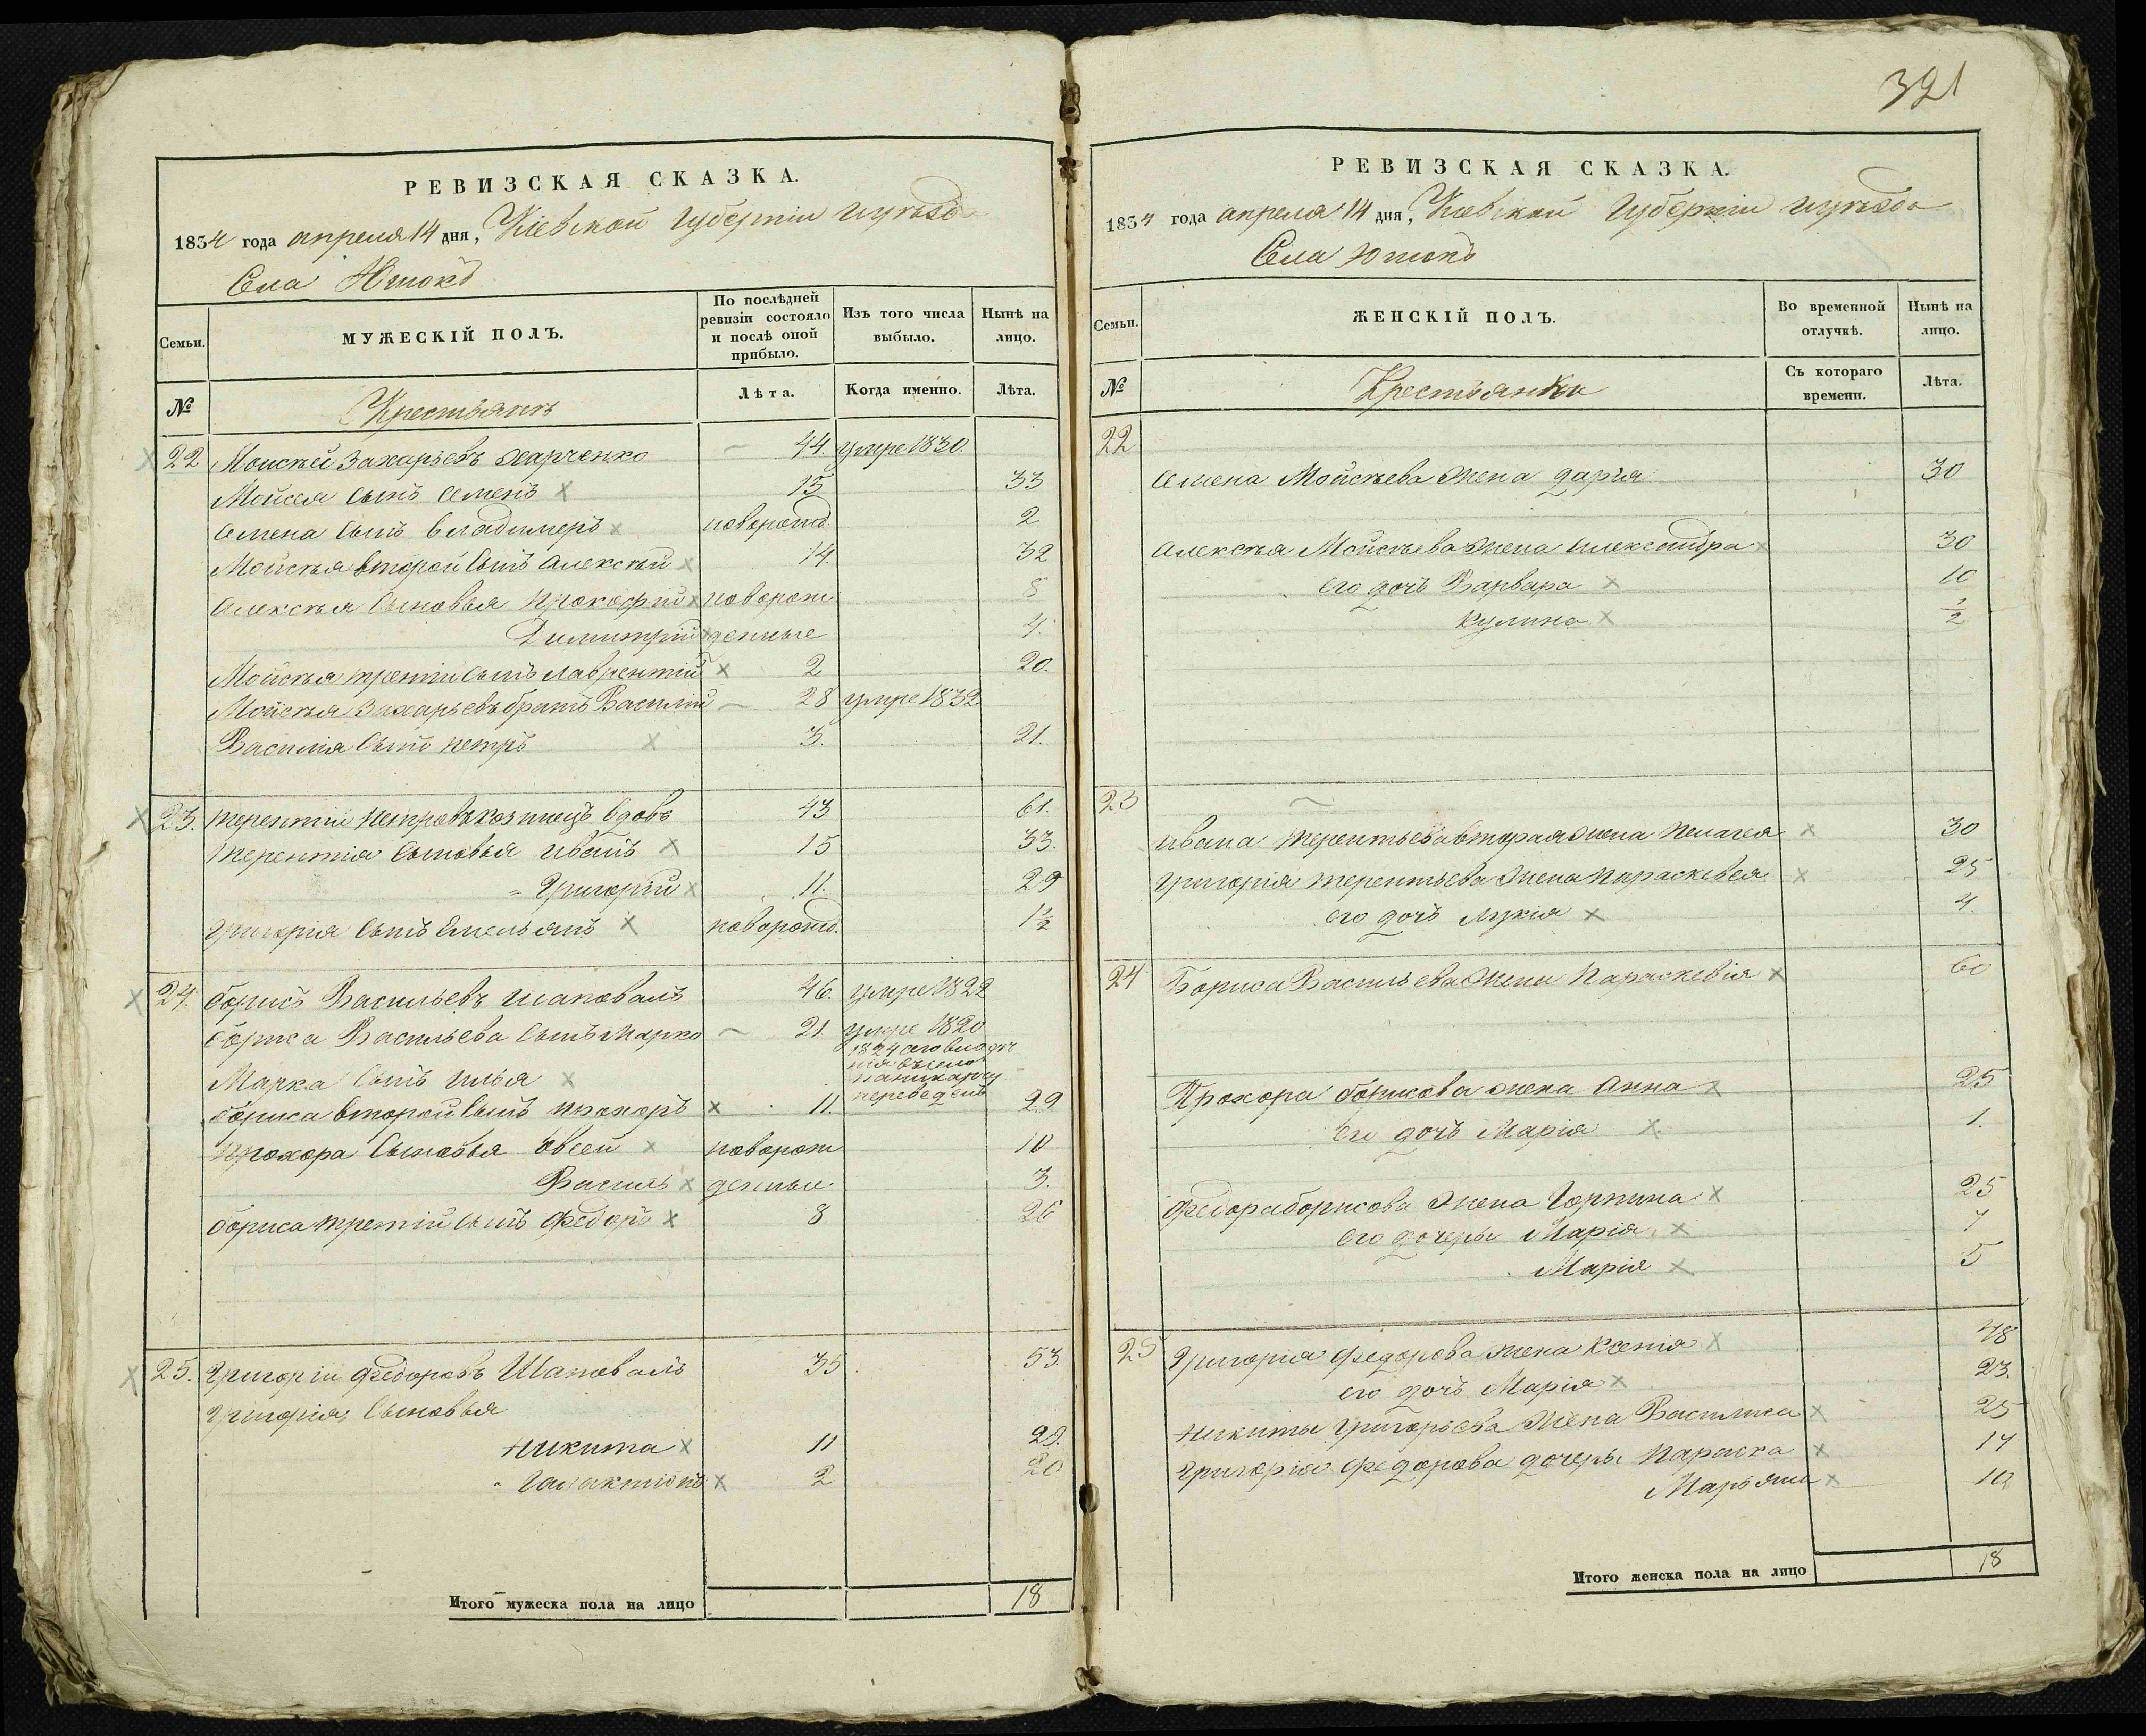 РЕВИЗСКАЯ СКАЗКА.
1834 года апреля 14 дня, Кіевской Губерніи и уѣзда
Села Юшокъ
Семьи.
МУЖЕСКІЙ ПОЛЪ.
По послѣдней ревизіи состояло и послѣ оной прибыло.
Изъ того числа выбыло.
Нынѣ на лицо.
№
Крестьянъ
Лѣта.
Когда именно.
Лѣта.
22 Моисѣй Захарьевъ Харченко 44. умре 1830.
Мойсея сынъ Семенъ 15 33
Семена сынъ Владимеръ новорожд. 2
Мойсѣя второй сынъ Алексѣй 14. 32
Алексѣя сыновья Прокофий новорож 8
Димитрий денные 4.
Мойсѣя третій сынъ Лаврентій 2 20.
Мойсѣя Захарьевъ братъ Василій 28 умре 1832
Василія сынъ Петръ 3. 21.
23. Терентій Петровъ вдовъ 43 61.
Терентія сыновья Иванъ 15 33.
Григорій 11. 29
Григорія сынъ Емельянъ новорожд. 1½
24. Борисъ Васильевъ Шаповалъ 46. умре 1822
Бориса Васильева сынъ Марко 21. умре 1820
1824
переведенъ
Марка сынъ Илья
Бориса второй сынъ Прохоръ 11. 29
Прохора сыновья Овсей новорож 10
Василь денные 3.
Бориса третій сынъ Федоръ 8 26
25. Григорій Федоровъ Шаповалъ 35 53.
Григорія сыновья
Никита 11 29.
Галактіонъ 2 20
Итого мужеска пола на лицо 18
321
РЕВИЗСКАЯ СКАЗКА.
1834 года апреля 14 дня, Кіевской Губерніи и уѣзда
Села Юшокъ
Семьи.
ЖЕНСКІЙ ПОЛЪ.
Во временной отлучкѣ.
Нынѣ на лицо.
№
Крестьянки
Съ котораго времени.
Лѣта.
22
Семена Мойсѣева жена Дарья 30
Алексѣя Мойсѣева жена Александра 30
его дочь Варвара 10
Кулина ½
23
Ивана Терентьева вторая жена Пелагея 30
Григорія Терентьева жена Параскевея 25
его дочь Лукія 4.
24 Бориса Васильева жена Параскевія 60
Прохора Борисова жена Анна 25
его дочь Марія 1.
Федора Борисова жена Горпина 25
его дочеры Марія 7
Марія 5
25 Григорія Федорова жена Ксенія 48
его дочь Марія 23.
Никиты Григорьева жена Василиса 25
Григорія Федорова дочеры Параска 14
Марьяна 10
Итого женска пола на лицо 18